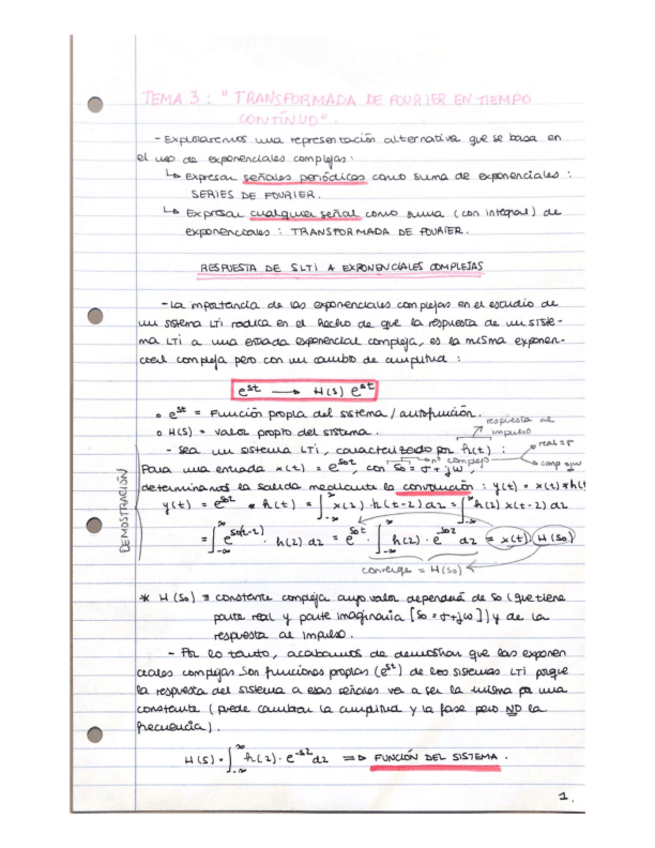 TEMA 3: "TRANSFORMADA DE FOURIER EN TIEMPO
CONTÍNUO".
- Exploraremos una representación alternativa que se basa en
el uso de exponenciales complejas:
↳ Expresar señales periódicas como suma de exponenciales:
SERIES DE FOURIER.
↳ Expresar cualquier señal como suma (con integral) de
exponenciales: TRANSFORMADA DE FOURIER.
RESPUESTA DE SLTI A EXPONENCIALES COMPLEJAS
- La importancia de las exponenciales complejas en el estudio de
un sistema LTI radica en el hecho de que la respuesta de un siste-
ma LTI a una entrada exponencial compleja, es la misma exponen-
cial compleja pero con un cambio de amplitud:
e^st → H(s) e^st
o e^st = Función propia del sistema / autofunción.
respuesta al
impulso
o H(s) = valor propio del sistema.
- Sea un sistema LTI, caracterizado por h(t):
real = σ
nº complejo
comp = jw
Para una entrada x(t) = e^s₀t, con s₀ = σ + jw,
determinamos la salida mediante la convolución: y(t) = x(t) * h(t
y(t) = e^s₀t * h(t) = ∫_-∞^∞ x(τ) h(t-τ) dτ = ∫_-∞^∞ h(τ) x(t-τ) dτ
= ∫_-∞^∞ e^s₀(t-τ) · h(τ) dτ = e^s₀t · ∫_-∞^∞ h(τ) · e^-s₀τ dτ = x(t) H(s₀)
converge = H(s₀)
DEMOSTRACIÓN
* H(s₀) = constante compleja cuyo valor dependerá de s₀ (que tiene
parte real y parte imaginaria [s₀ = σ + jw]) y de la
respuesta al impulso.
- Por lo tanto, acabamos de demostrar que las exponen
ciales complejas son funciones propias (e^st) de los sistemas LTI porque
la respuesta del sistema a esas señales va a ser la misma por una
constante (puede cambiar la amplitud y la fase pero NO la
frecuencia).
H(s) = ∫_-∞^∞ h(τ) · e^-sτ dτ ⇒ FUNCIÓN DEL SISTEMA.
1.